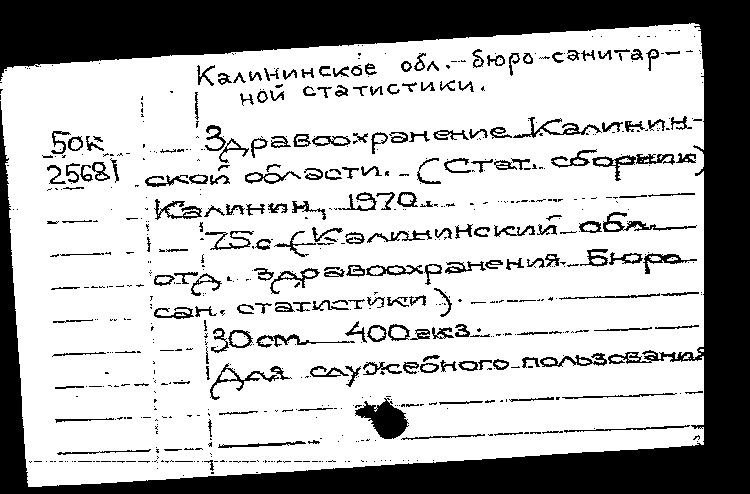 Калининское обл. бюро санитар-
ной статистики.
50к
25681
Здравоохранение Калинин-
ской области. (Стат. сборник)
Калинин, 1970.
75с. (Калининский обл.
отд. здравоохранения. Бюро
сан. статистики).
30 см. 400 экз.
Для служебного пользования